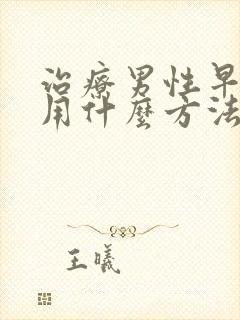 治療男性早
用什麼方法
王曦